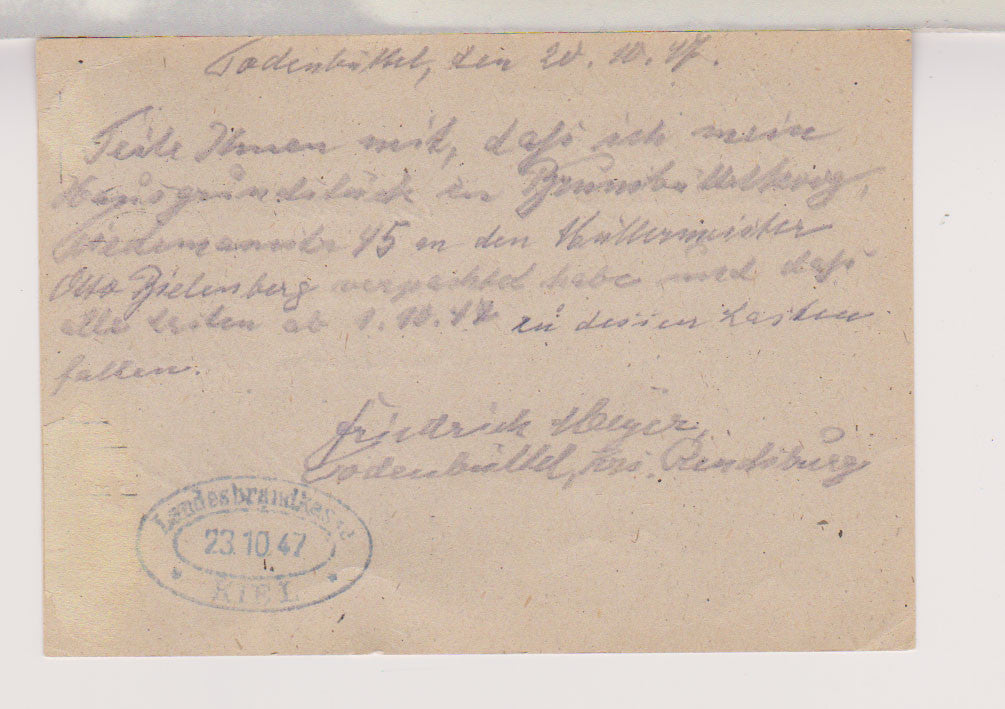 Todenbüttel, den 20. 10. 47.
Teile Ihnen mit, daß ich mein
Hausgrundstück in Brunsbüttelkoog,
45 an den Müllermeister
Otto Bielenberg verpachtet habe und daß
alle Lasten ab 1. 10. 47 zu dessen Lasten
fallen.
Friedrich Meyer,
Todenbüttel, Krs. Rendsburg
Landesbrandkasse
23.10.47
KIEL